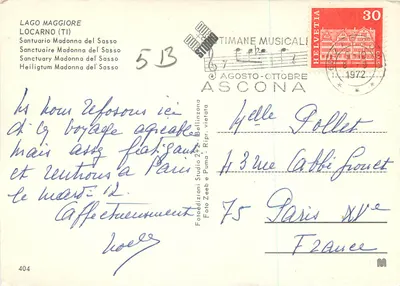 LAGO MAGGIORE
LOCARNO (TI)
Santuario Madonna del Sasso
Sanctuaire Madonna del Sasso
Sanctuary Madonna del Sasso
Heiligtum Madonna del Sasso
5B
SETTIMANE MUSICALI
AGOSTO-OTTOBRE
ASCONA
1972
HELVETIA
30
Nous nous reposons ici
du voyage agréable
mais assez fatigant
et rentrons à Paris
le mardi 12.
Affectueusement
Fotoedizioni Studio 2 Bellinzona
Foto Zeeb e Pumo - Ripr. vietata
Melle Pollet
43 rue
75 Paris XVe
France
404